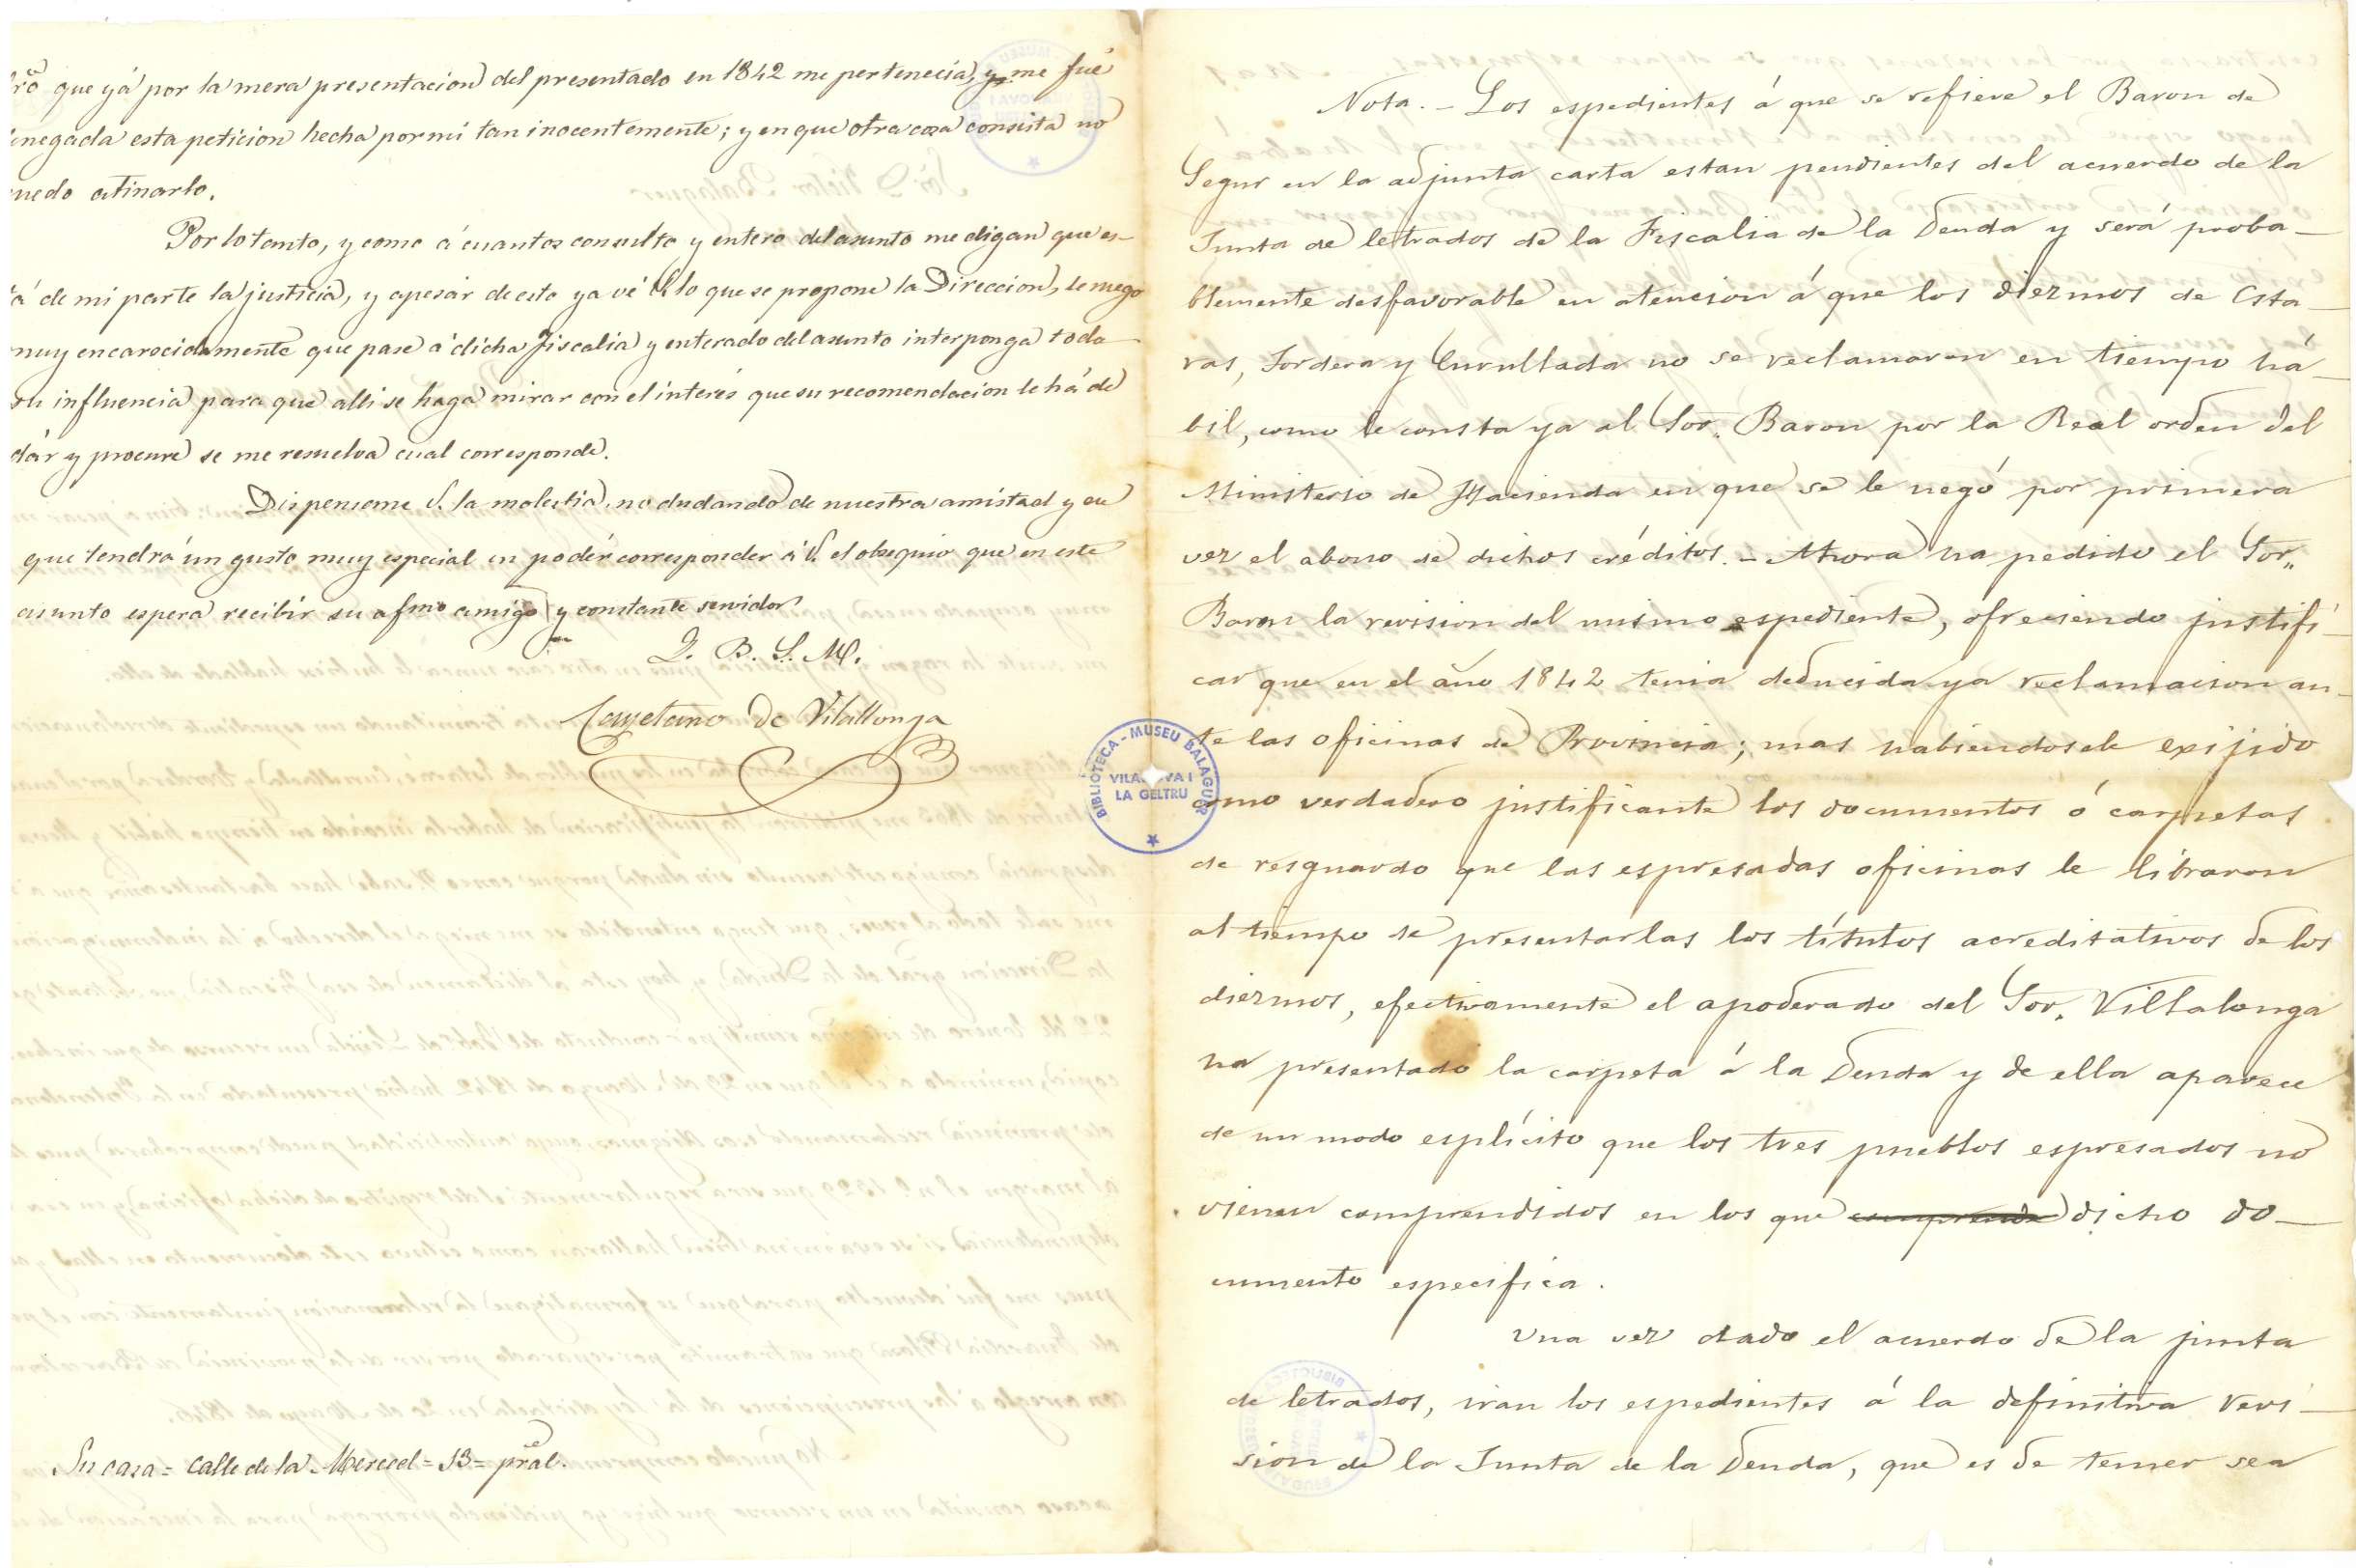 que yá por la mera presentacion del presentado en 1842 me pertenecia, y me fué
esta peticion hecha por mi tan inocentemente; y en que otra cosa consista no
atinarlo.
Por lo tanto, y como á cuantos consulto y entero del asunto me digan que es-
tá de mi parte la justicia, y apesar de esto ya vé V. lo que se propone la Direccion, le ruego
muy encarecidamente que pase á dicha Fiscalia y enterado del asunto interponga toda
su influencia para que alli se haga mirar con el interés que su recomendacion le há de
dár y procure se me resuelva cual corresponde.
Dispenseme V. la molestia, no dudando de nuestra amistad y en
que tendrá un gusto muy especial en podér corresponder á V. el obsequio que en este
asunto espera recibir su afmo amigo y constante servidor
Q. B. S. M.
Cayetano de Vilallonga
Su casa = Calle de la Merced = 13 = pral.
Nota. - Los espedientes á que se refiere el Baron de
Segur en la adjunta carta estan pendientes del acuerdo de la
Junta de letrados de la Fiscalia de la Deuda y será proba-
blemente desfavorable en atencion á que los diezmos de Esta-
ras, Tordera y Curullada no se reclamaron en tiempo há-
bil, como le consta ya al Sor. Baron por la Real orden del
Ministerio de Hacienda en que se le negó por primera
vez el abono de dichos créditos. - Ahora ha pedido el Sor.
Baron la revision del mismo espediente, ofreciendo justifi-
car que en el año 1842 tenia deducida ya reclamacion an-
te las oficinas de Provincia; mas habiendosele exijido
como verdadero justificante los documentos ó carpetas
de resguardo que las espresadas oficinas le libraron
al tiempo de presentarlas los títulos acreditativos de los
diezmos, efectivamente el apoderado del Sor. Villalonga
ha presentado la carpeta á la Deuda y de ella aparece
de un modo esplícito que los tres pueblos espresados no
vienen comprendidos en los que comprende dicho do-
cumento especifica.
Una vez dado el acuerdo de la junta
de letrados, iran los espedientes á la definitiva revi-
sion de la Junta de la Deuda, que es de temer sea
BIBLIOTECA - MUSEU BALAGUER
VILANOVA I
LA GELTRU